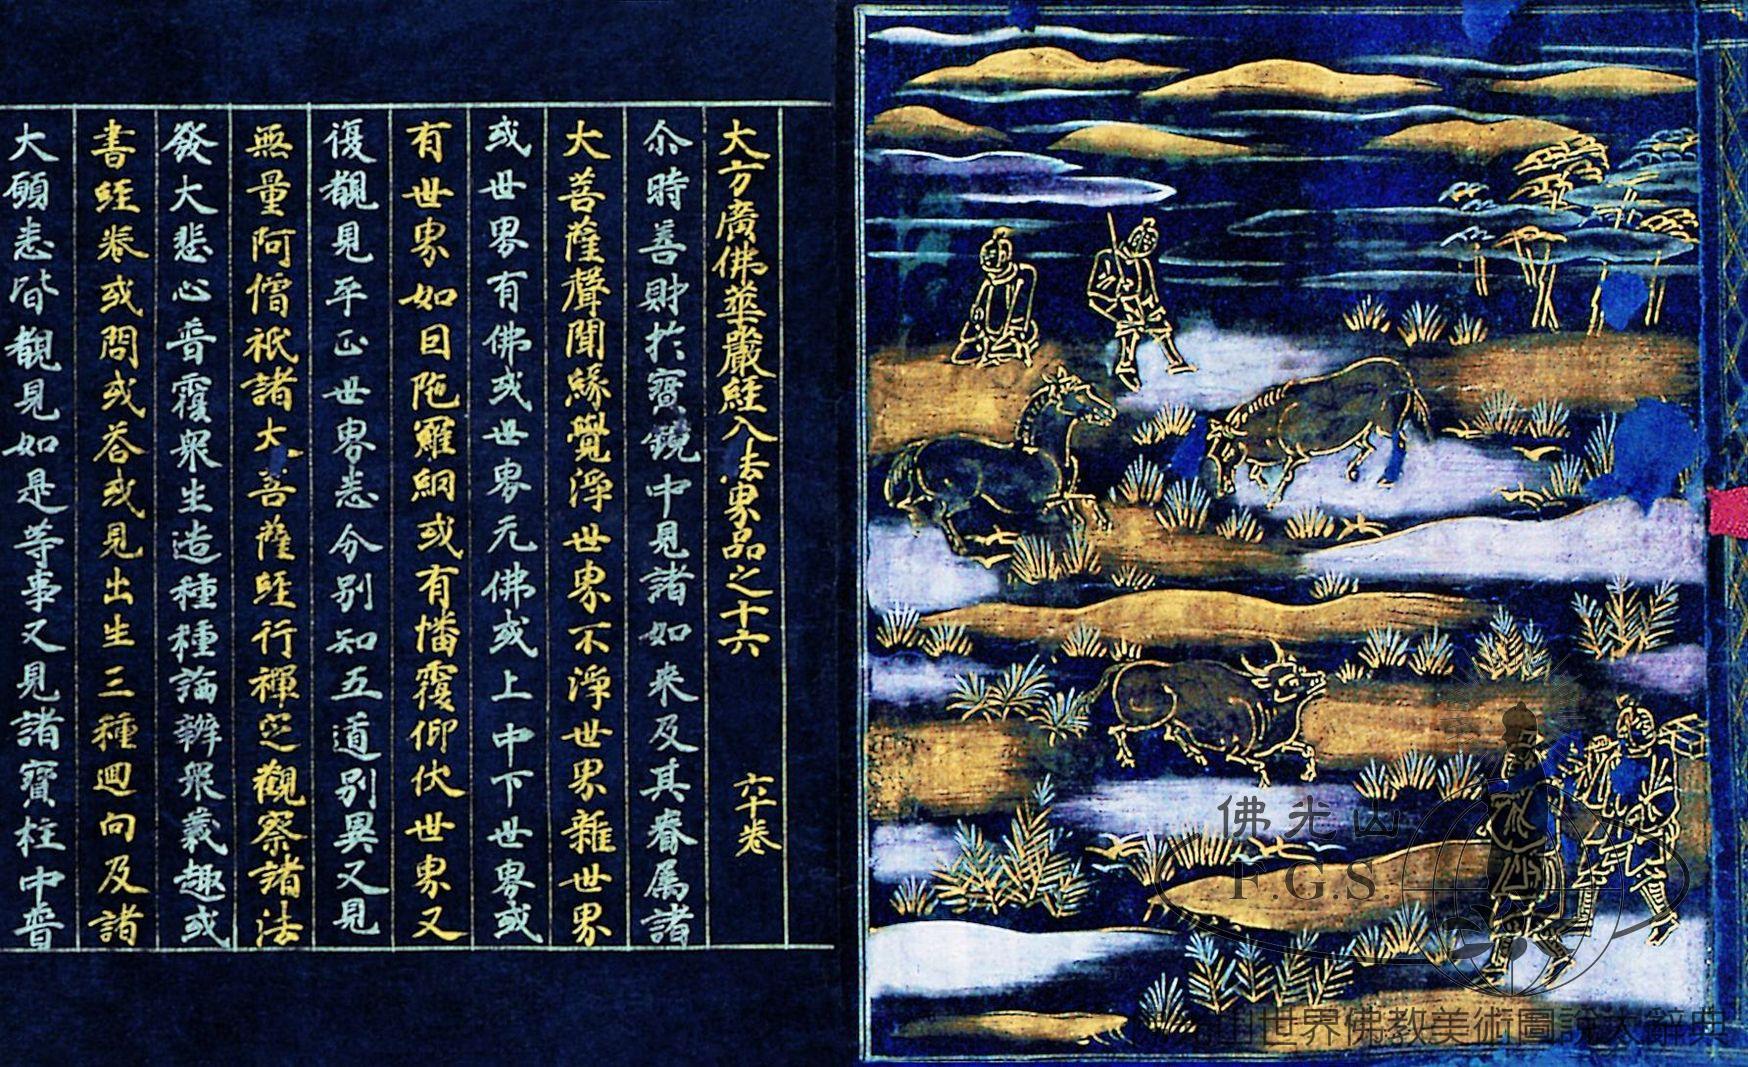 大方廣佛華嚴經入法界品之十六 六十卷
尒時善財於寶鏡中見諸如来及其眷属諸
大菩薩聲聞緣覺淨世界不淨世界雜世界
或世界有佛或世界无佛或上中下世界或
有世界如因陁羅網或有憣覆仰伏世界又
復觀見平正世界悉分别知五道别異又見
無量阿僧祇諸大菩薩經行禪定觀察諸法
發大悲心普覆衆生造種種論辯衆義趣或
書經卷或問或荅或見出生三種迴向及諸
大願悉皆觀見如是等事又見諸寶柱中普
佛光山
F.G.S
佛光山世界佛教美術圖說大辭典